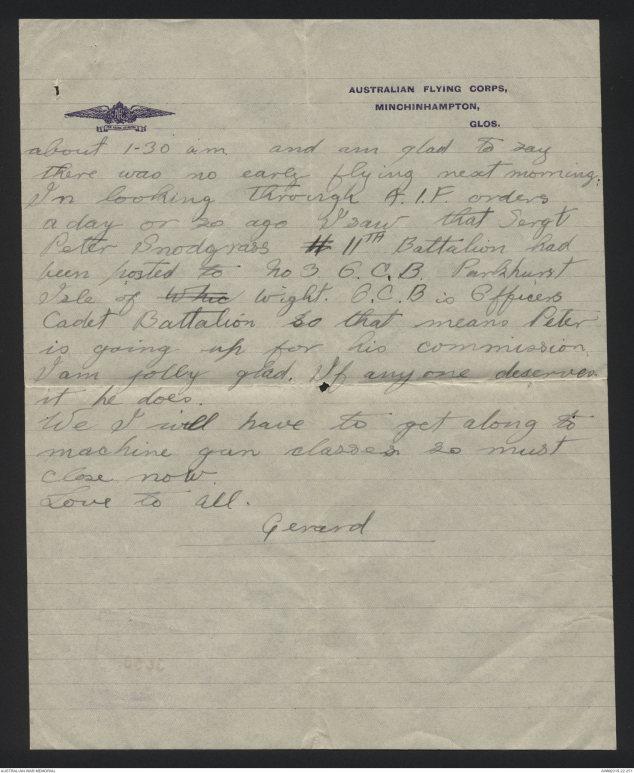 AUSTRALIAN FLYING CORPS,
MINCHINHAMPTON,
GLOS.
about 1-30 am and am glad to say
there was no early flying next morning.
In looking through A.I.F. orders
a day or so ago I saw that Sergt
Peter Snodgrass # 11TH Battalion had
been posted to No 3 O.C.B. Parkhurst
Isle of Whic Wight. O.C.B is Officers
Cadet Battalion so that means Peter
is going up for his commission.
I am jolly glad. If any one deserves
it he does.
We I will have to get along to
machine gun classes so must
close now.
Love to all.
Gerard
AUSTRALIAN WAR MEMORIAL